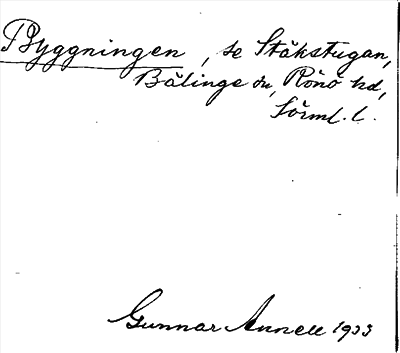 Byggningen, se Stökstugan,
Bälinge sn, Rönö hd,
Sörml. l.
Gunnar Annell 1933